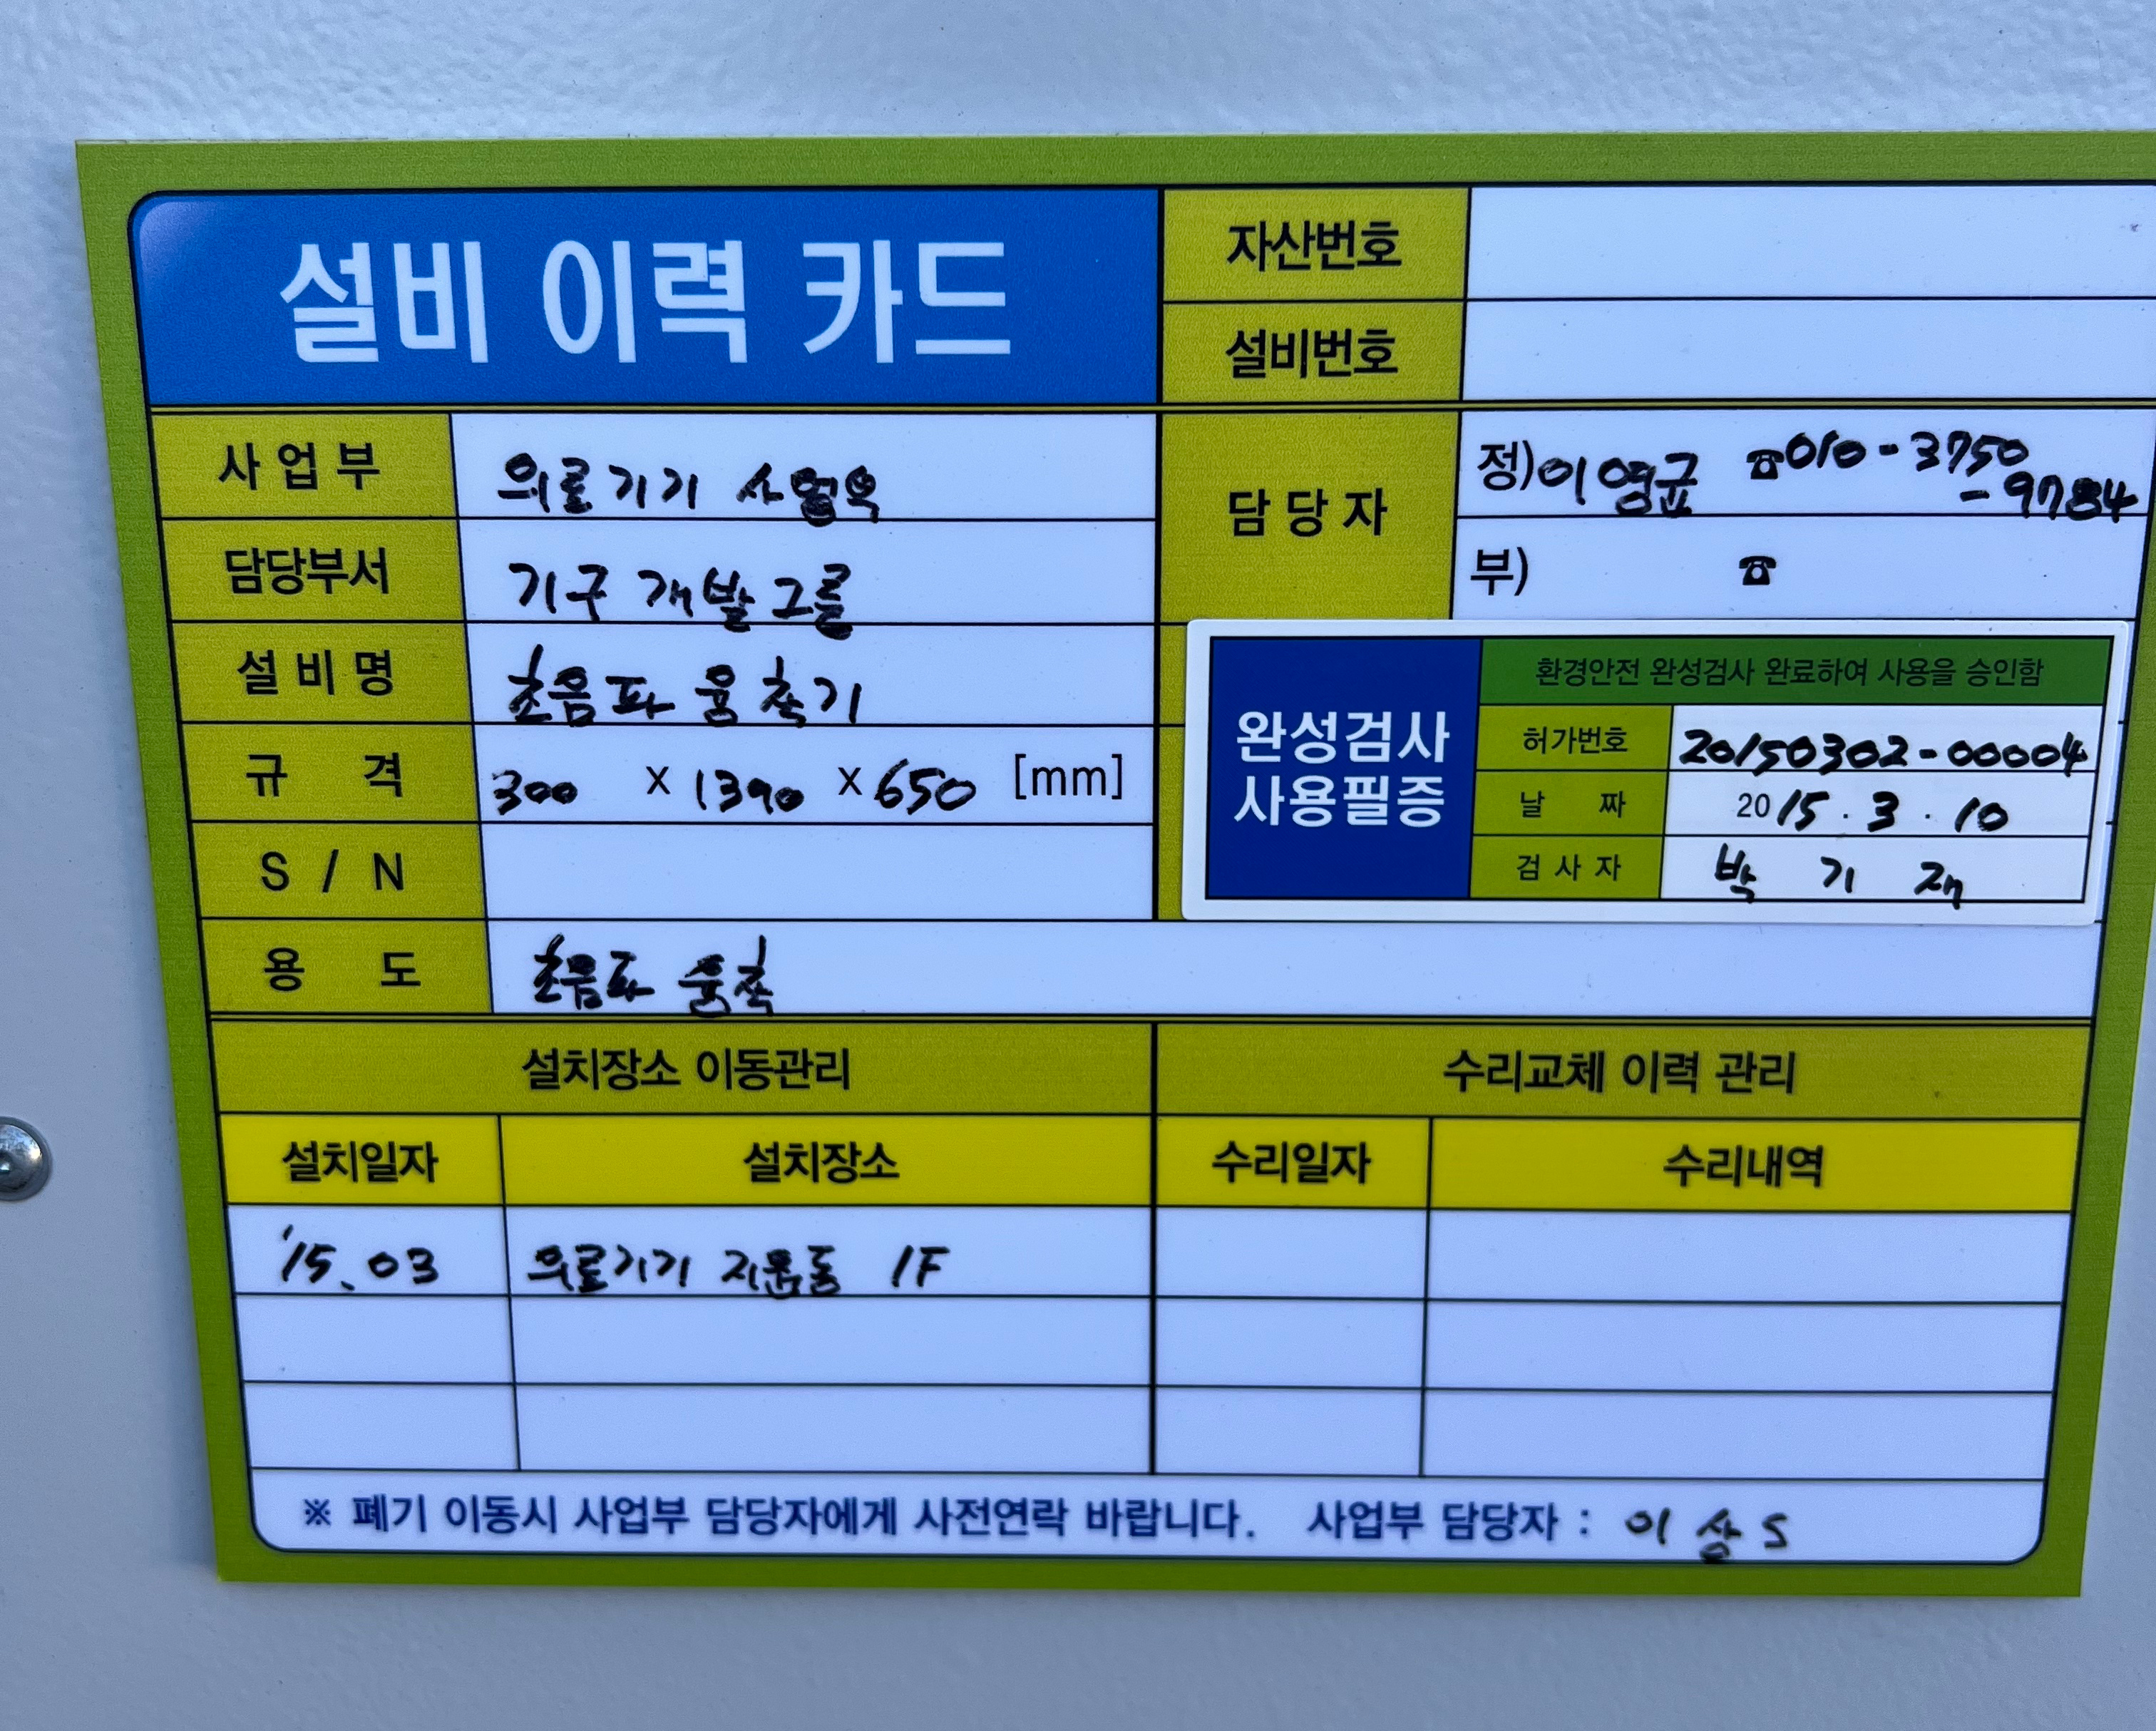 설비 이력 카드
자산번호
설비번호
사업부 의료기기 사업부
담당부서 기구 개발그룹
담당자 정)이영균 ☎010-3750
-9784
부) ☎
설비명 초음파 융착기
규 격 300 x 1390 x 650 [mm]
S / N
용 도 초음파 융착
환경안전 완성검사 완료하여 사용을 승인함
완성검사
사용필증
허가번호 20150302-00004
날 짜 2015 . 3 . 10
검 사 자 박 기 재
설치장소 이동관리 수리교체 이력 관리
설치일자 설치장소 수리일자 수리내역
'15. 03 의료기기 지원동 1F
※ 폐기 이동시 사업부 담당자에게 사전연락 바랍니다. 사업부 담당자 : 이 상 S